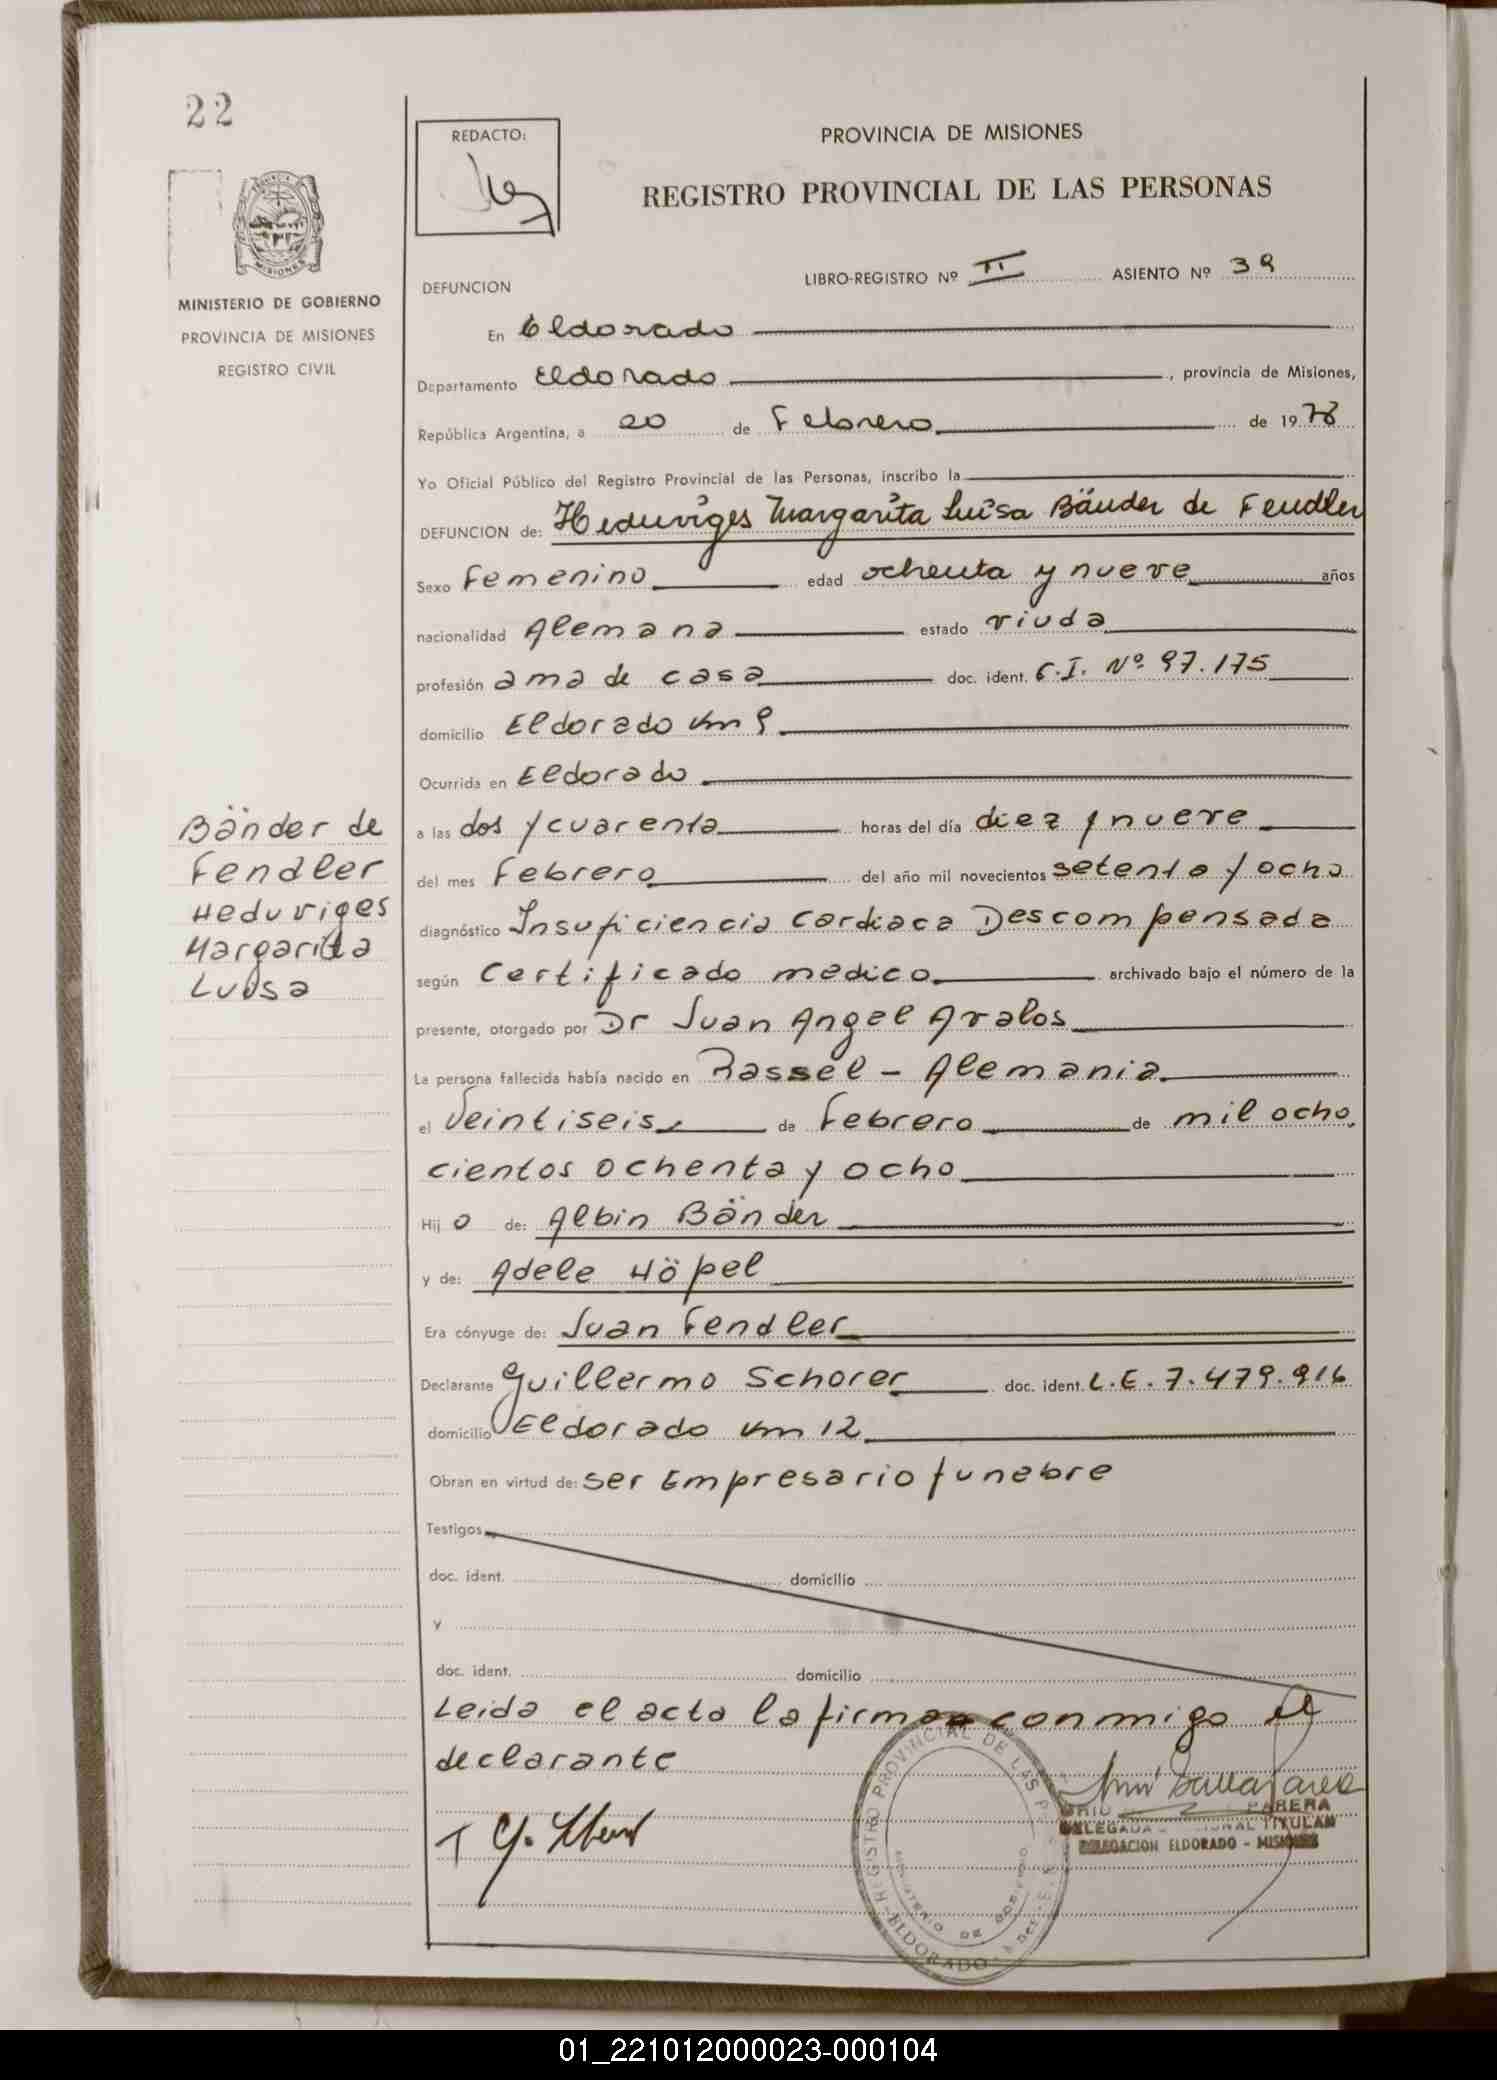 22
REDACTO:
PROVINCIA DE MISIONES
REGISTRO PROVINCIAL DE LAS PERSONAS
MISIONES
MINISTERIO DE GOBIERNO
PROVINCIA DE MISIONES
REGISTRO CIVIL
DEFUNCION
LIBRO-REGISTRO Nº II ASIENTO Nº 39
En Eldorado
Departamento Eldorado, provincia de Misiones,
República Argentina, a 20 de Febrero de 1978
Yo Oficial Público del Registro Provincial de las Personas, inscribo la
DEFUNCION de: Heduviges Margarita Luisa Bänder de Fendler
Sexo Femenino edad ochenta y nueve años
nacionalidad Alemana estado viuda
profesión ama de casa doc. ident. C.I. Nº 97.175
domicilio Eldorado Km 9
Ocurrida en Eldorado
a las dos y cuarenta horas del día diez y nueve
del mes Febrero del año mil novecientos setenta y ocho
diagnóstico Insuficiencia Cardiaca Descompensada
según Certificado medico archivado bajo el número de la
presente, otorgado por Dr Juan Angel Avalos
La persona fallecida había nacido en Kassel - Alemania
el Veintiseis de Febrero de mil ocho
cientos ochenta y ocho
Hij o de: Albin Bänder
y de: Adele Höpel
Era cónyuge de: Juan Fendler
Declarante Guillermo Schorer doc. ident. L.E. 7.479.916
domicilio Eldorado Km 12
Obran en virtud de: ser Empresario funebre
Testigos
doc. ident. domicilio
y
doc. ident. domicilio
Leida el acta la firman conmigo el
declarante
Bänder de
Fendler
Heduviges
Margarita
Luisa
REGISTRO PROVINCIAL DE LAS P
MINISTERIO DE GOBIERNO
ELDORADO
TITULAR
DELEGACION ELDORADO - MISIONES
01_221012000023-000104